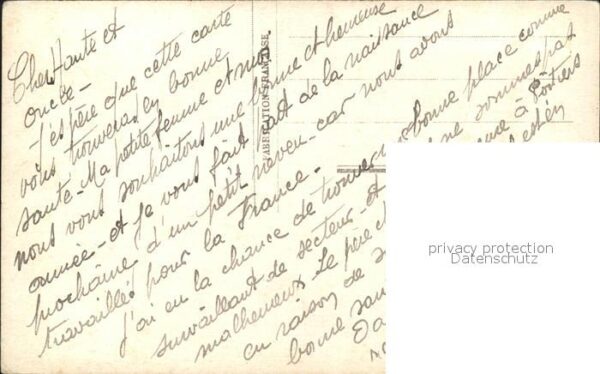 Chers tante et
oncle -
J'espère que cette carte
vous trouvera en bonne
santé - Ma petite femme et moi
nous vous souhaitons une bonne et heureuse
année - et je vous fait part de la naissance
prochaine d'un petit neveu - car nous avons
travaillés pour la France.
J'ai eu la chance de trouver bonne place comme
surveillant de secteur - et ne sommes pas
malheureux. Le père à Poitiers
en raison de
bonne san
FABRICATION FRANÇAISE
privacy protection
Datenschutz